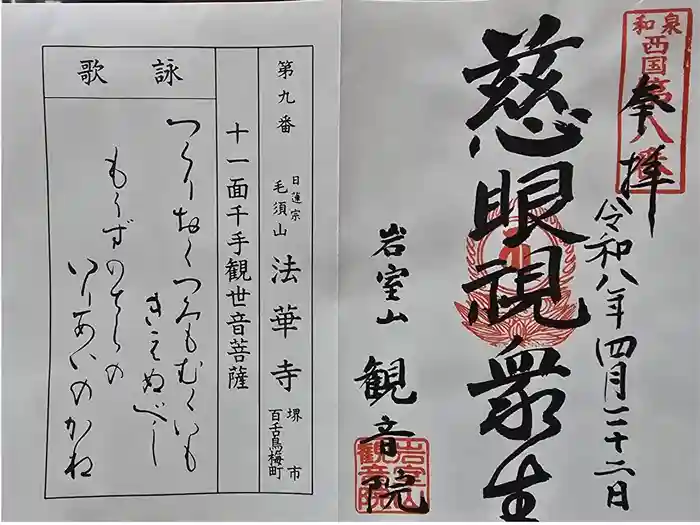 和泉
西国第八番
奉拝
令和八年四月二十二日
慈眼視衆生
岩室山
観音院
第九番
日蓮宗
毛須山
法華寺
堺市
百舌鳥梅町
十一面千手観世音菩薩
詠歌
つくりおくつみもむくいも
きえぬべし
もずのてらの
いりあいのかね